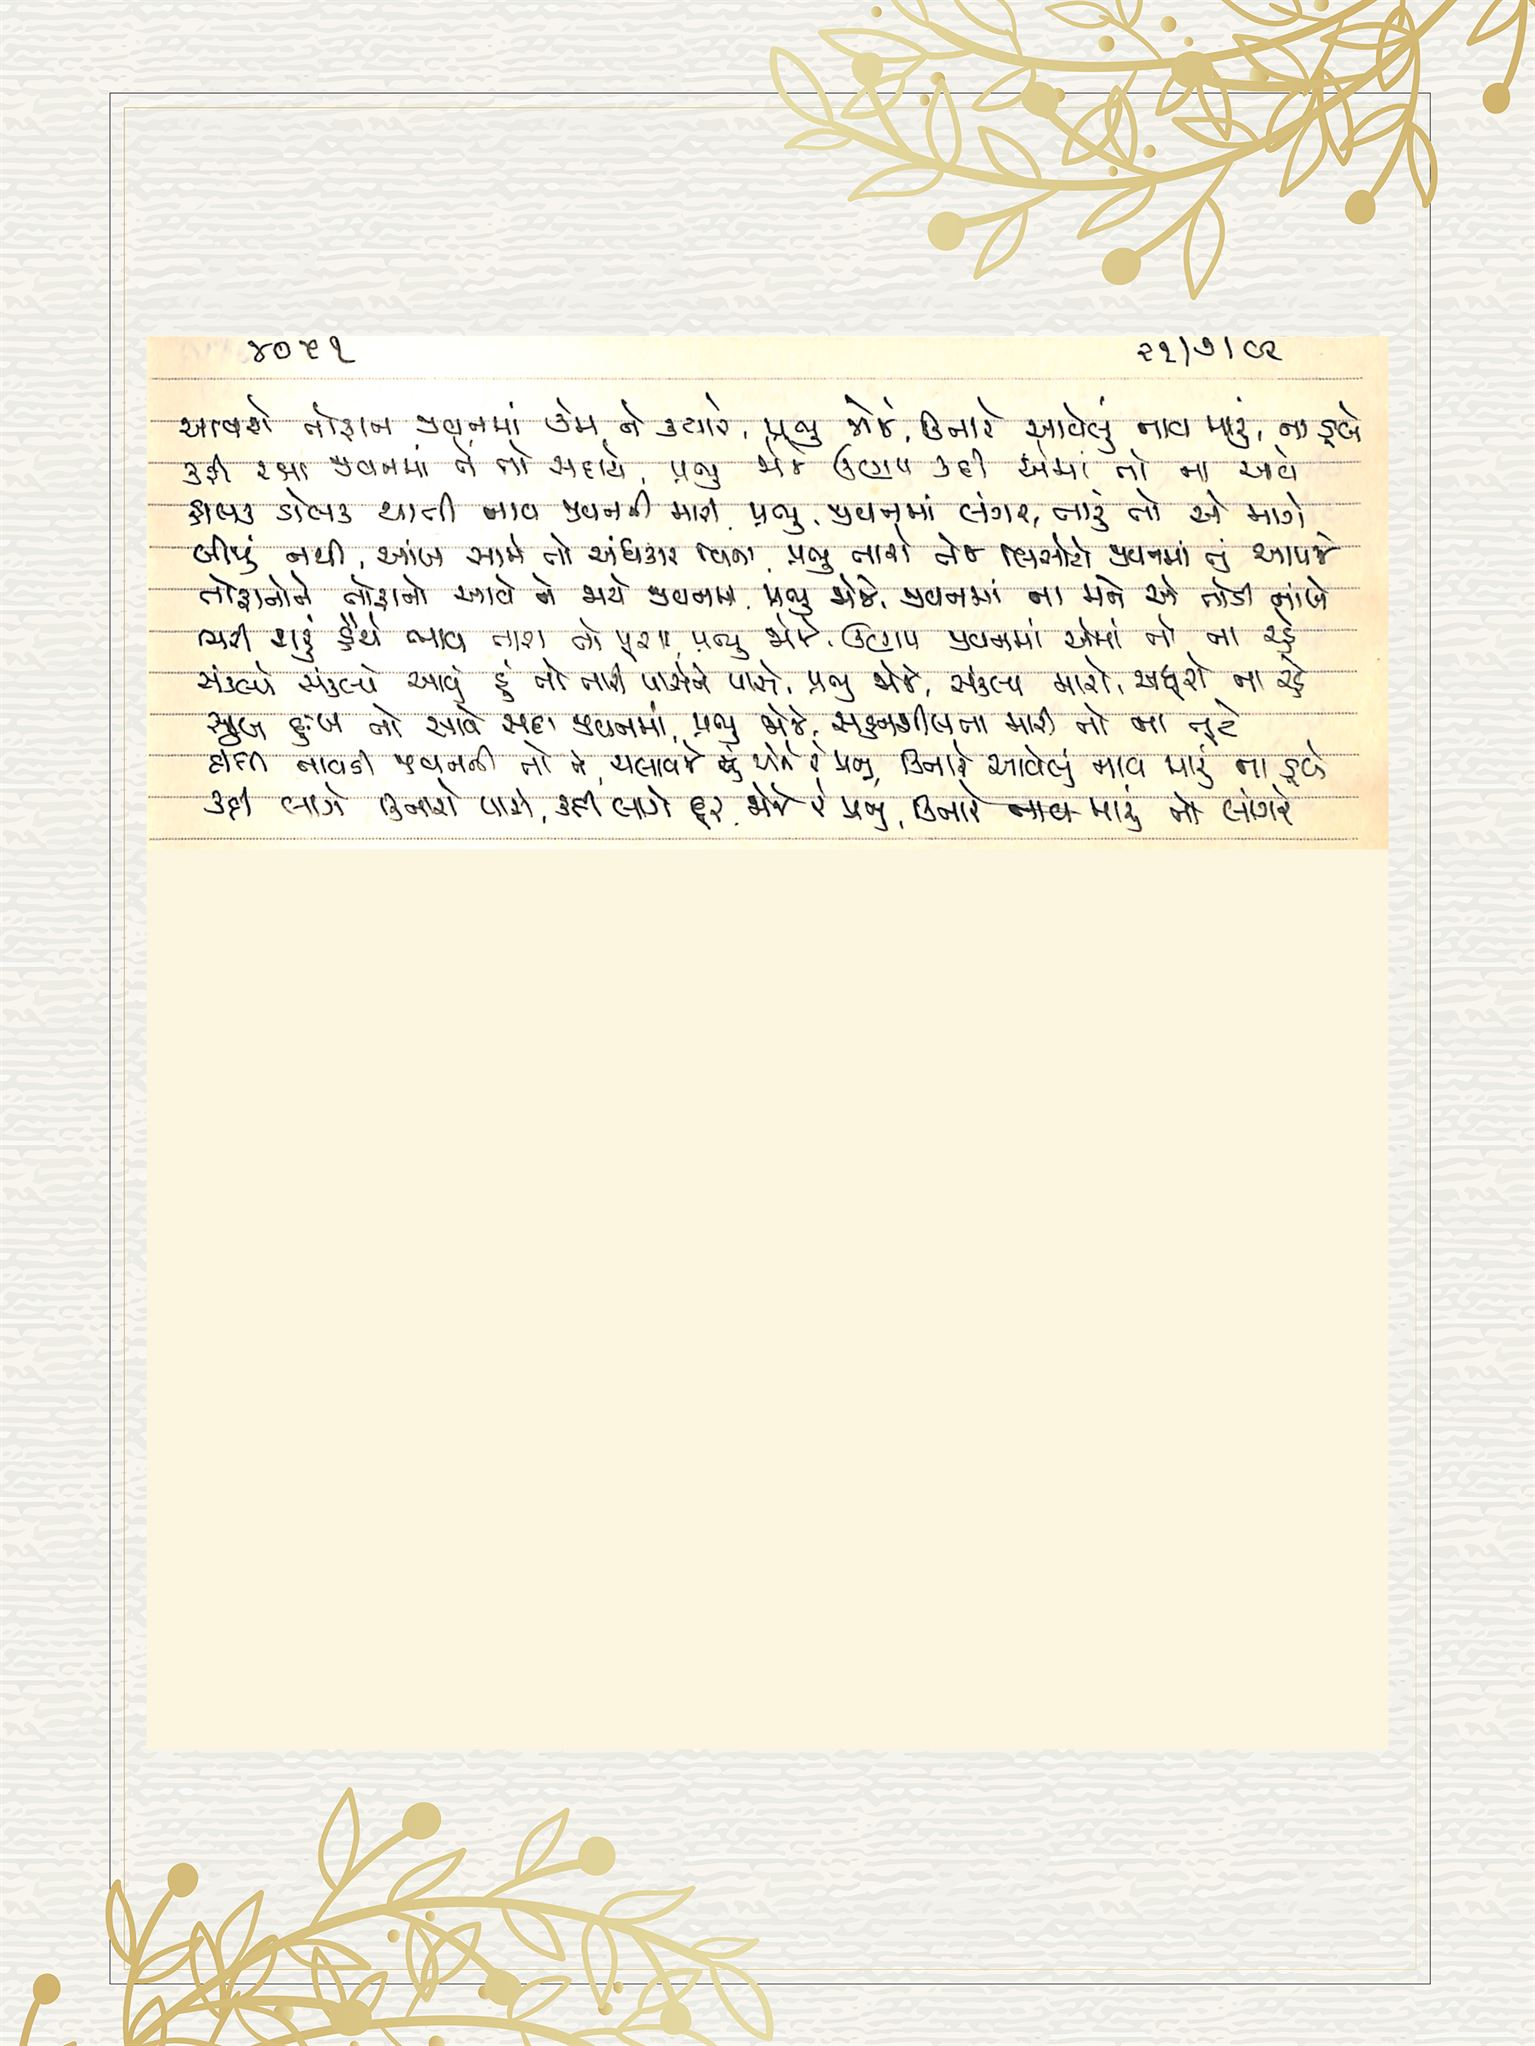 ૪૦૫૧ ૨૧/૭/૯૨
આવશે તોફાન જીવનમાં કેમ ને ક્યારે, પ્રભુ જોજે, કિનારે આવેલું નાવ મારું, ના ડૂબે
કરી રક્ષા જીવનમાં તેં તો સદાયે, પ્રભુ જોજે ઉણપ કદી એમાં તો ના આવે
હાલક ડોલક થાતી નાવ જીવનની મારી, પ્રભુ, જીવનમાં લંગર, તારું તો એ માગે
બીજું નથી, આંખ સામે તો અંધકાર વિના, પ્રભુ તારા તેજ લિસોટો જીવનમાં તું આપજે
તોફાનોને તોફાનો આવે ને જાયે જીવનમાં, પ્રભુ જોજે, જીવનમાં ના મને એ તોડી નાંખે
ભરી શકું હૈયે ભાવ તારા તો પૂરા, પ્રભુ જોજે, ઉણપ જીવનમાં એમાં તો ના રહે
સંકલ્પે સંકલ્પે આવું હું તો તારી પાસેને પાસે, પ્રભુ જોજે, સંકલ્પ મારો, અધૂરો ના રહે
સુખ દુઃખ તો આવે સદા જીવનમાં, પ્રભુ જોજે, સહનશીલતા મારી તો ના તૂટે
હોડી નાવડી જીવનની તો તેં, ચલાવજે તું પોતે રે પ્રભુ, કિનારે આવેલું નાવ મારું ના ડૂબે
કદી લાગે કિનારો પાસે, કદી લાગે દૂર, જોજે રે પ્રભુ, કિનારે નાવ મારું તો લંગરે